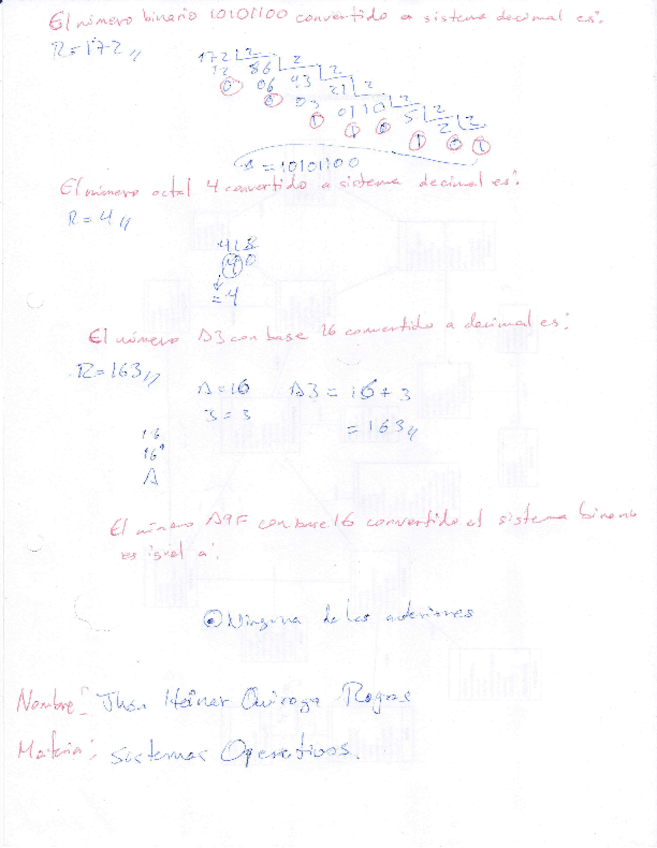 El número binario 10101100 convertido a sistema decimal es:
R=172,,
172 2
12 86 2
0 06 43 2
0 03 21 2
1 01 10 2
1 0 5 2
1 2 2
0 1
= 10101100
El número octal 4 convertido a sistema decimal es:
R = 4 ,,
4 8
4 0
= 4
El número A3 con base 16 convertido a decimal es:
R=163,,
A=16 A3 = 16 + 3
3 = 3
= 163,,
16
16°
A
El número A9F con base 16 convertido al sistema binario
es igual a:
Ninguna de las anteriores
Nombre: Jhon Heiner Quiroga Rogas
Materia: Sistemas Operativos.